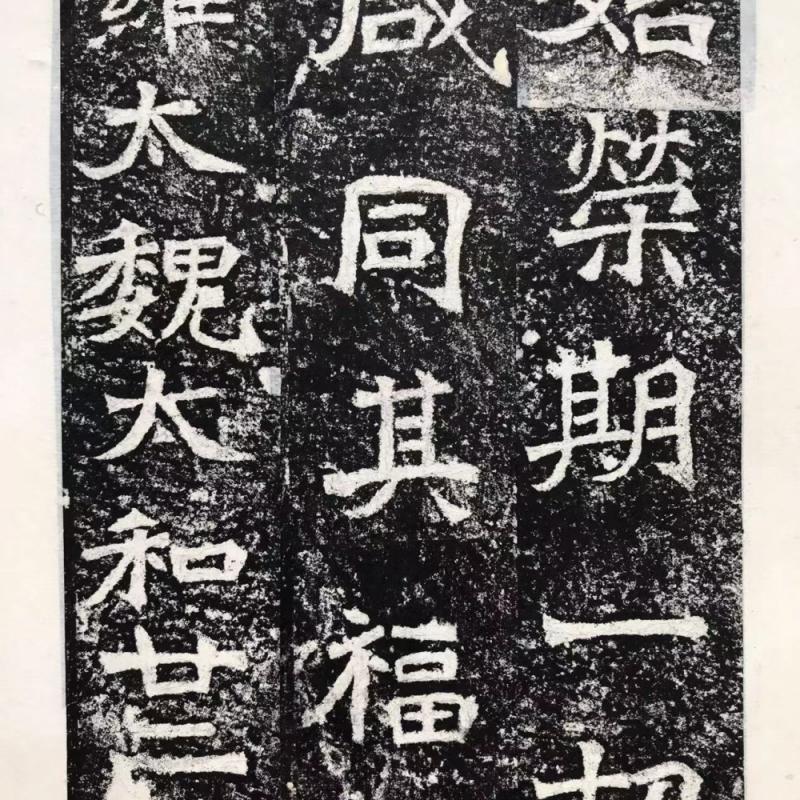 始榮期一
咸同其福
維太魏太和廿二